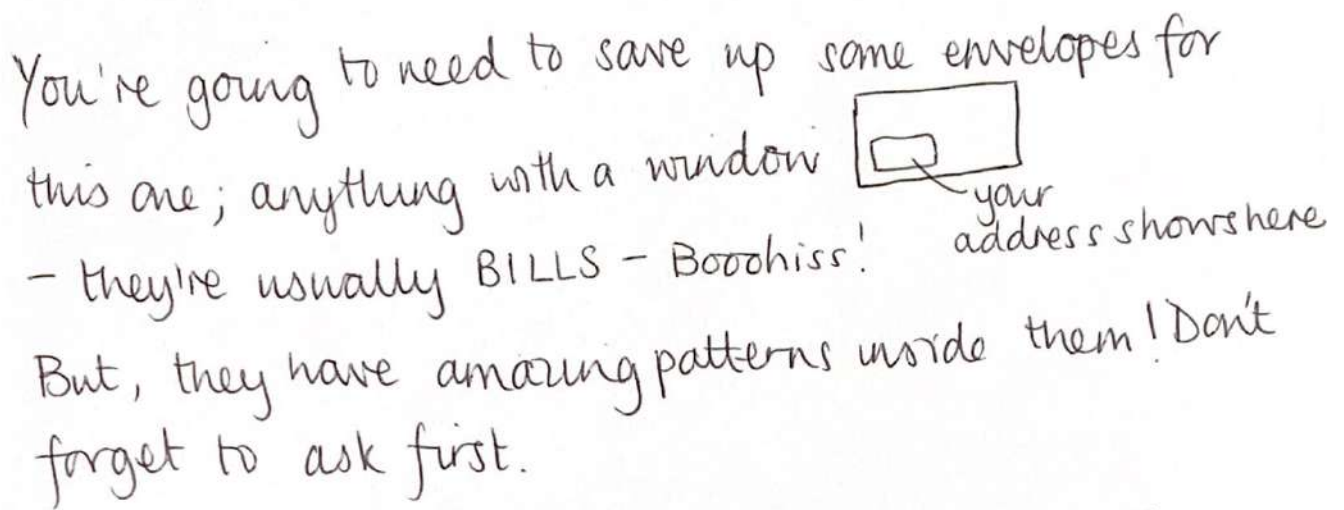 You're going to need to save up some envelopes for
this one; anything with a window
your
address shows here
- they're usually BILLS - Booohiss!
But, they have amazing patterns inside them! Don't
forget to ask first.